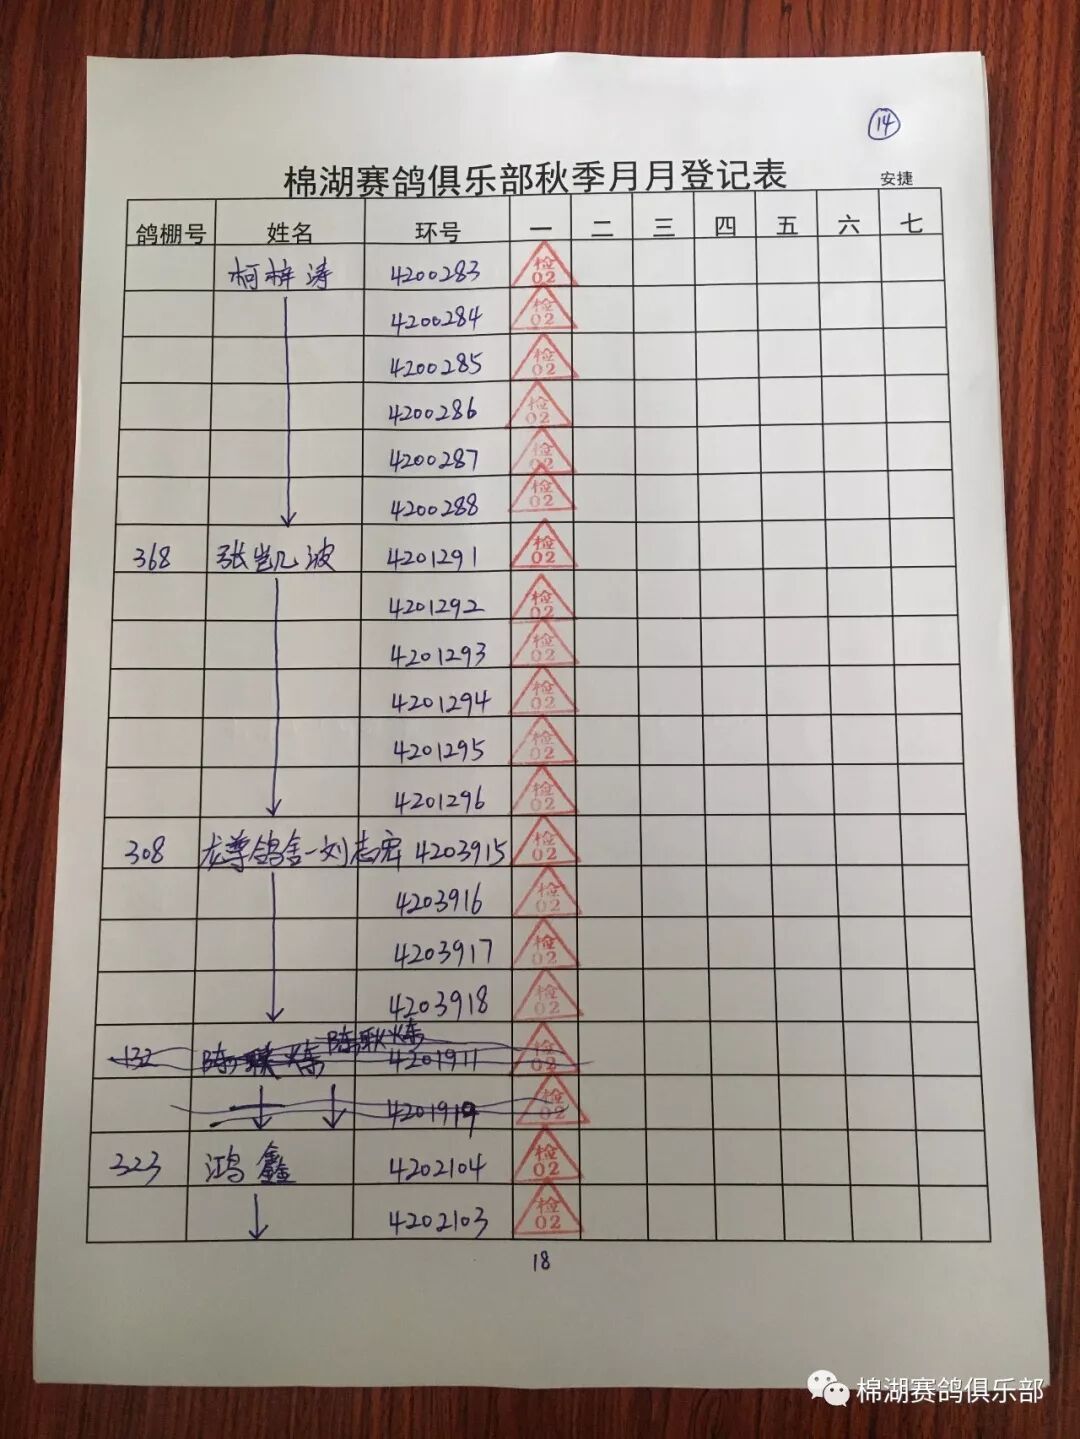 14
棉湖赛鸽俱乐部秋季月月登记表 安捷
鸽棚号 姓名 环号 一 二 三 四 五 六 七
柯梓涛 4200283 检02
4200284 检02
4200285 检02
4200286 检02
4200287 检02
4200288 检02
368 张凯波 4201291 检02
4201292 检02
4201293 检02
4201294 检02
4201295 检02
4201296 检02
308 龙尊鸽舍-刘志宏 4203915 检02
4203916 检02
4203917 检02
4203918 检02
132 4201911 检02
检02
323 鸿鑫 4202104 检02
4202103 检02
18
棉湖赛鸽俱乐部